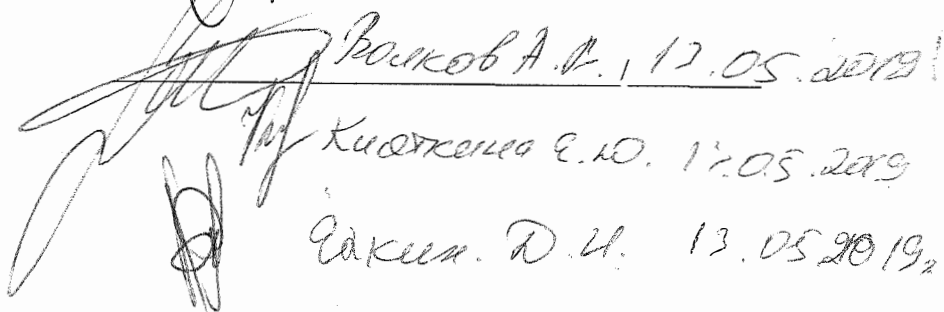 Волков А.В., 13.05.2019
Княткина Е.Ю. 13.05.2019
Ёлкин. Д.И. 13.05 2019г